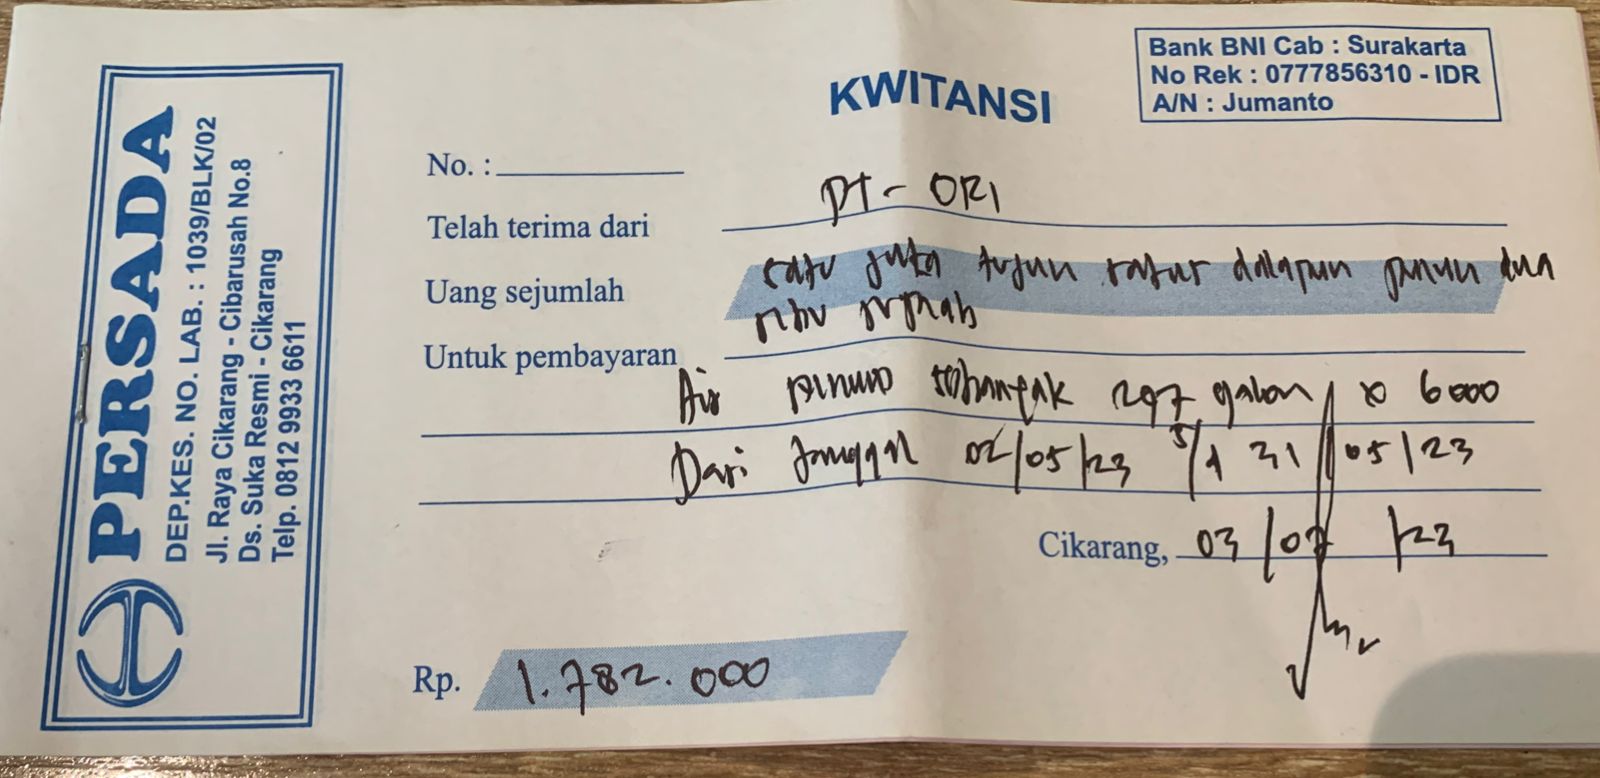 PERSADA
DEP.KES. NO. LAB. : 1039/BLK/02
Jl. Raya Cikarang - Cibarusah No.8
Ds. Suka Resmi - Cikarang
Telp. 0812 9933 6611
Bank BNI Cab : Surakarta
No Rek : 0777856310 - IDR
A/N : Jumanto
KWITANSI
No. :
Telah terima dari PT - ORI
Uang sejumlah satu juta tujuh ratus delapan puluh dua
ribu rupiah
Untuk pembayaran
Air minum sebanyak 297 galon x 6000
Dari tanggal 02/05/23 s/d 31/05/23
Cikarang, 03/07/23
Rp. 1.782.000